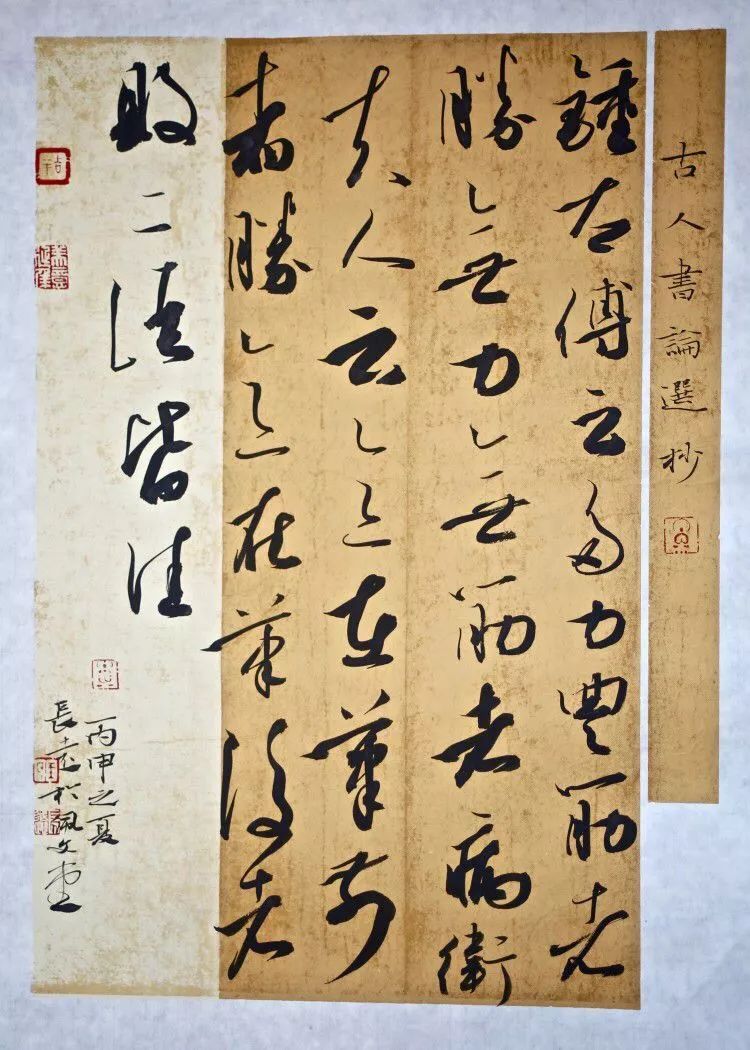 古人書論選抄
鍾太傅云多力豐筋者
勝無力無筋者病衛
夫人云意在筆前
者勝意在筆後者
敗二法皆佳
丙申之夏
長於佩文堂